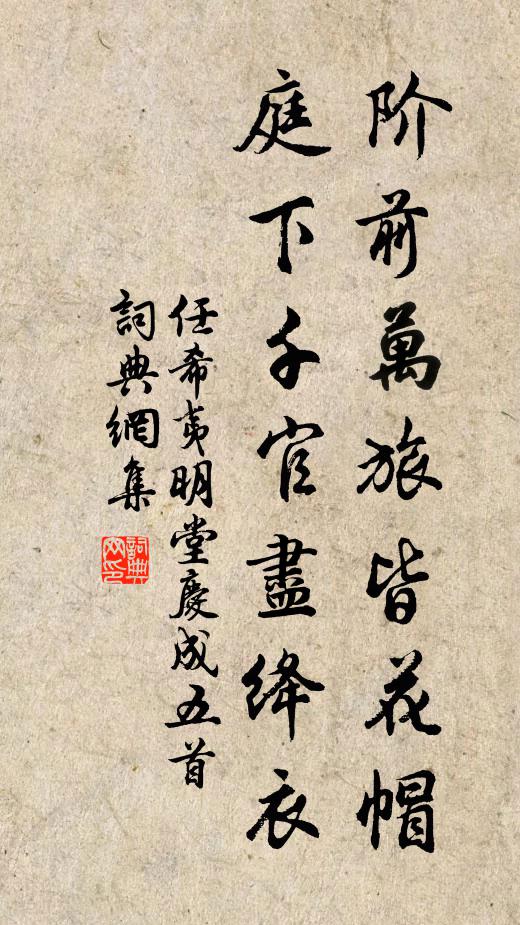 阶前萬旅皆花帽
庭下千官盡绛衣
任希夷明堂慶成五首
詞典網集
詞典网印